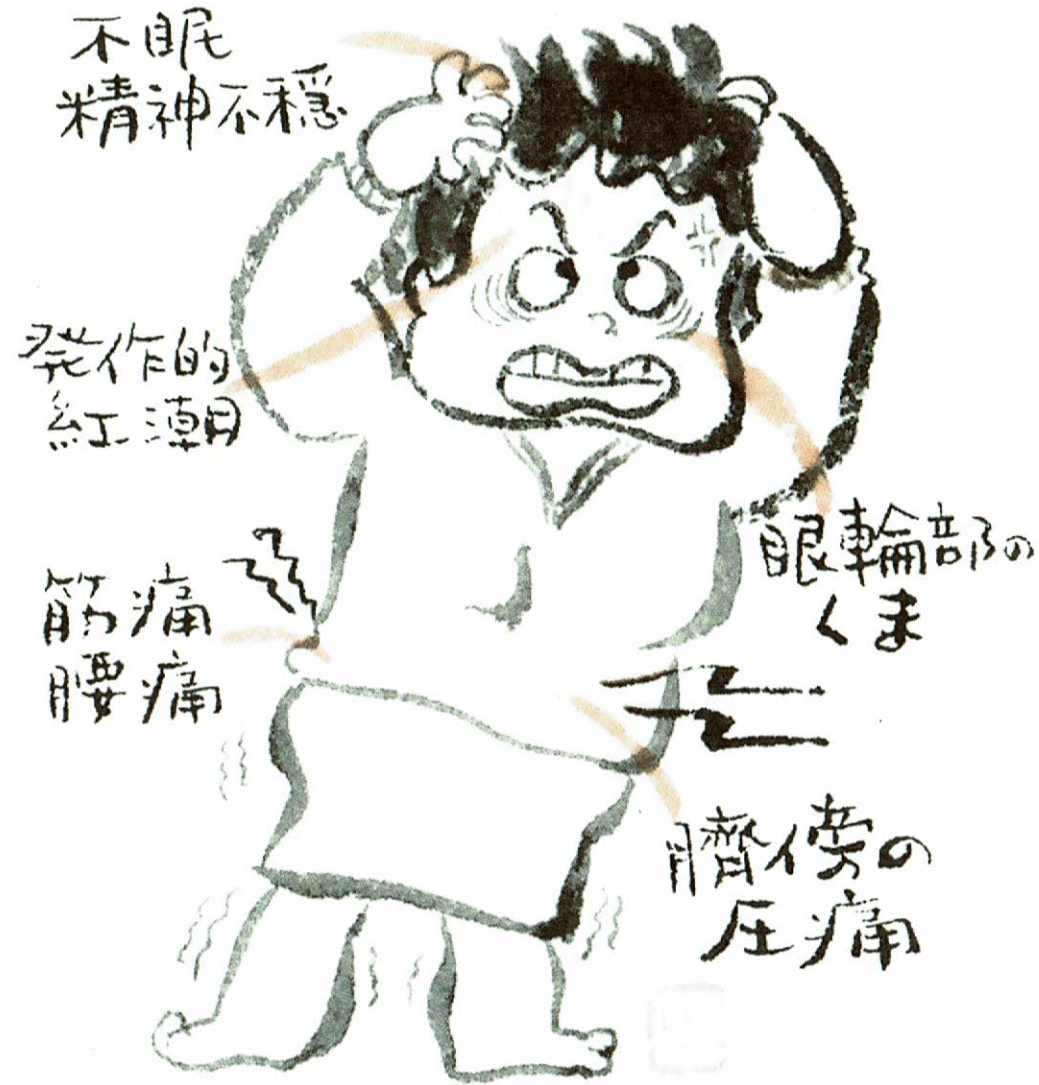 不眠
精神不穏
発作的
紅潮
眼輪部の
くま
筋痛
腰痛
臍傍の
圧痛